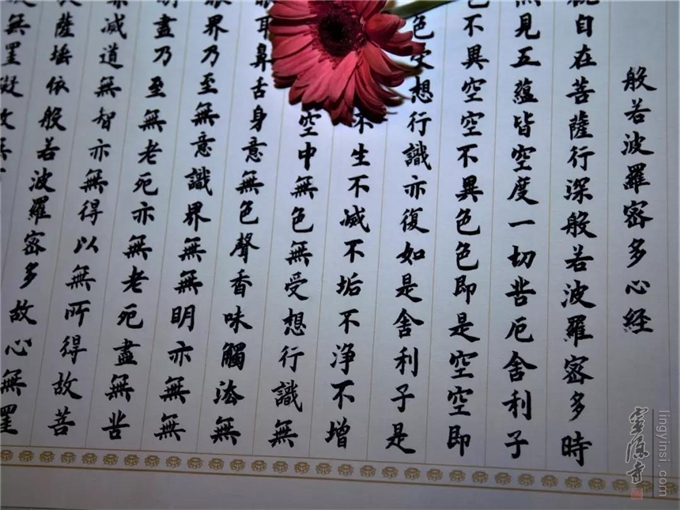 般若波羅密多心經
自在菩薩行深般若波羅密多時
見五蘊皆空度一切苦厄舍利子
色不異空空不異色色即是空空即
色受想行識亦復如是舍利子是
不生不滅不垢不净不增
空中無色無受想行識無
眼耳鼻舌身意無色聲香味觸法無
眼界乃至無意識界無無明亦無無
明盡乃至無老死亦無老死盡無苦
集滅道無智亦無得以無所得故菩
薩埵依般若波羅密多故心無罣
無罣礙故無
靈隱寺
lingyinsi.com